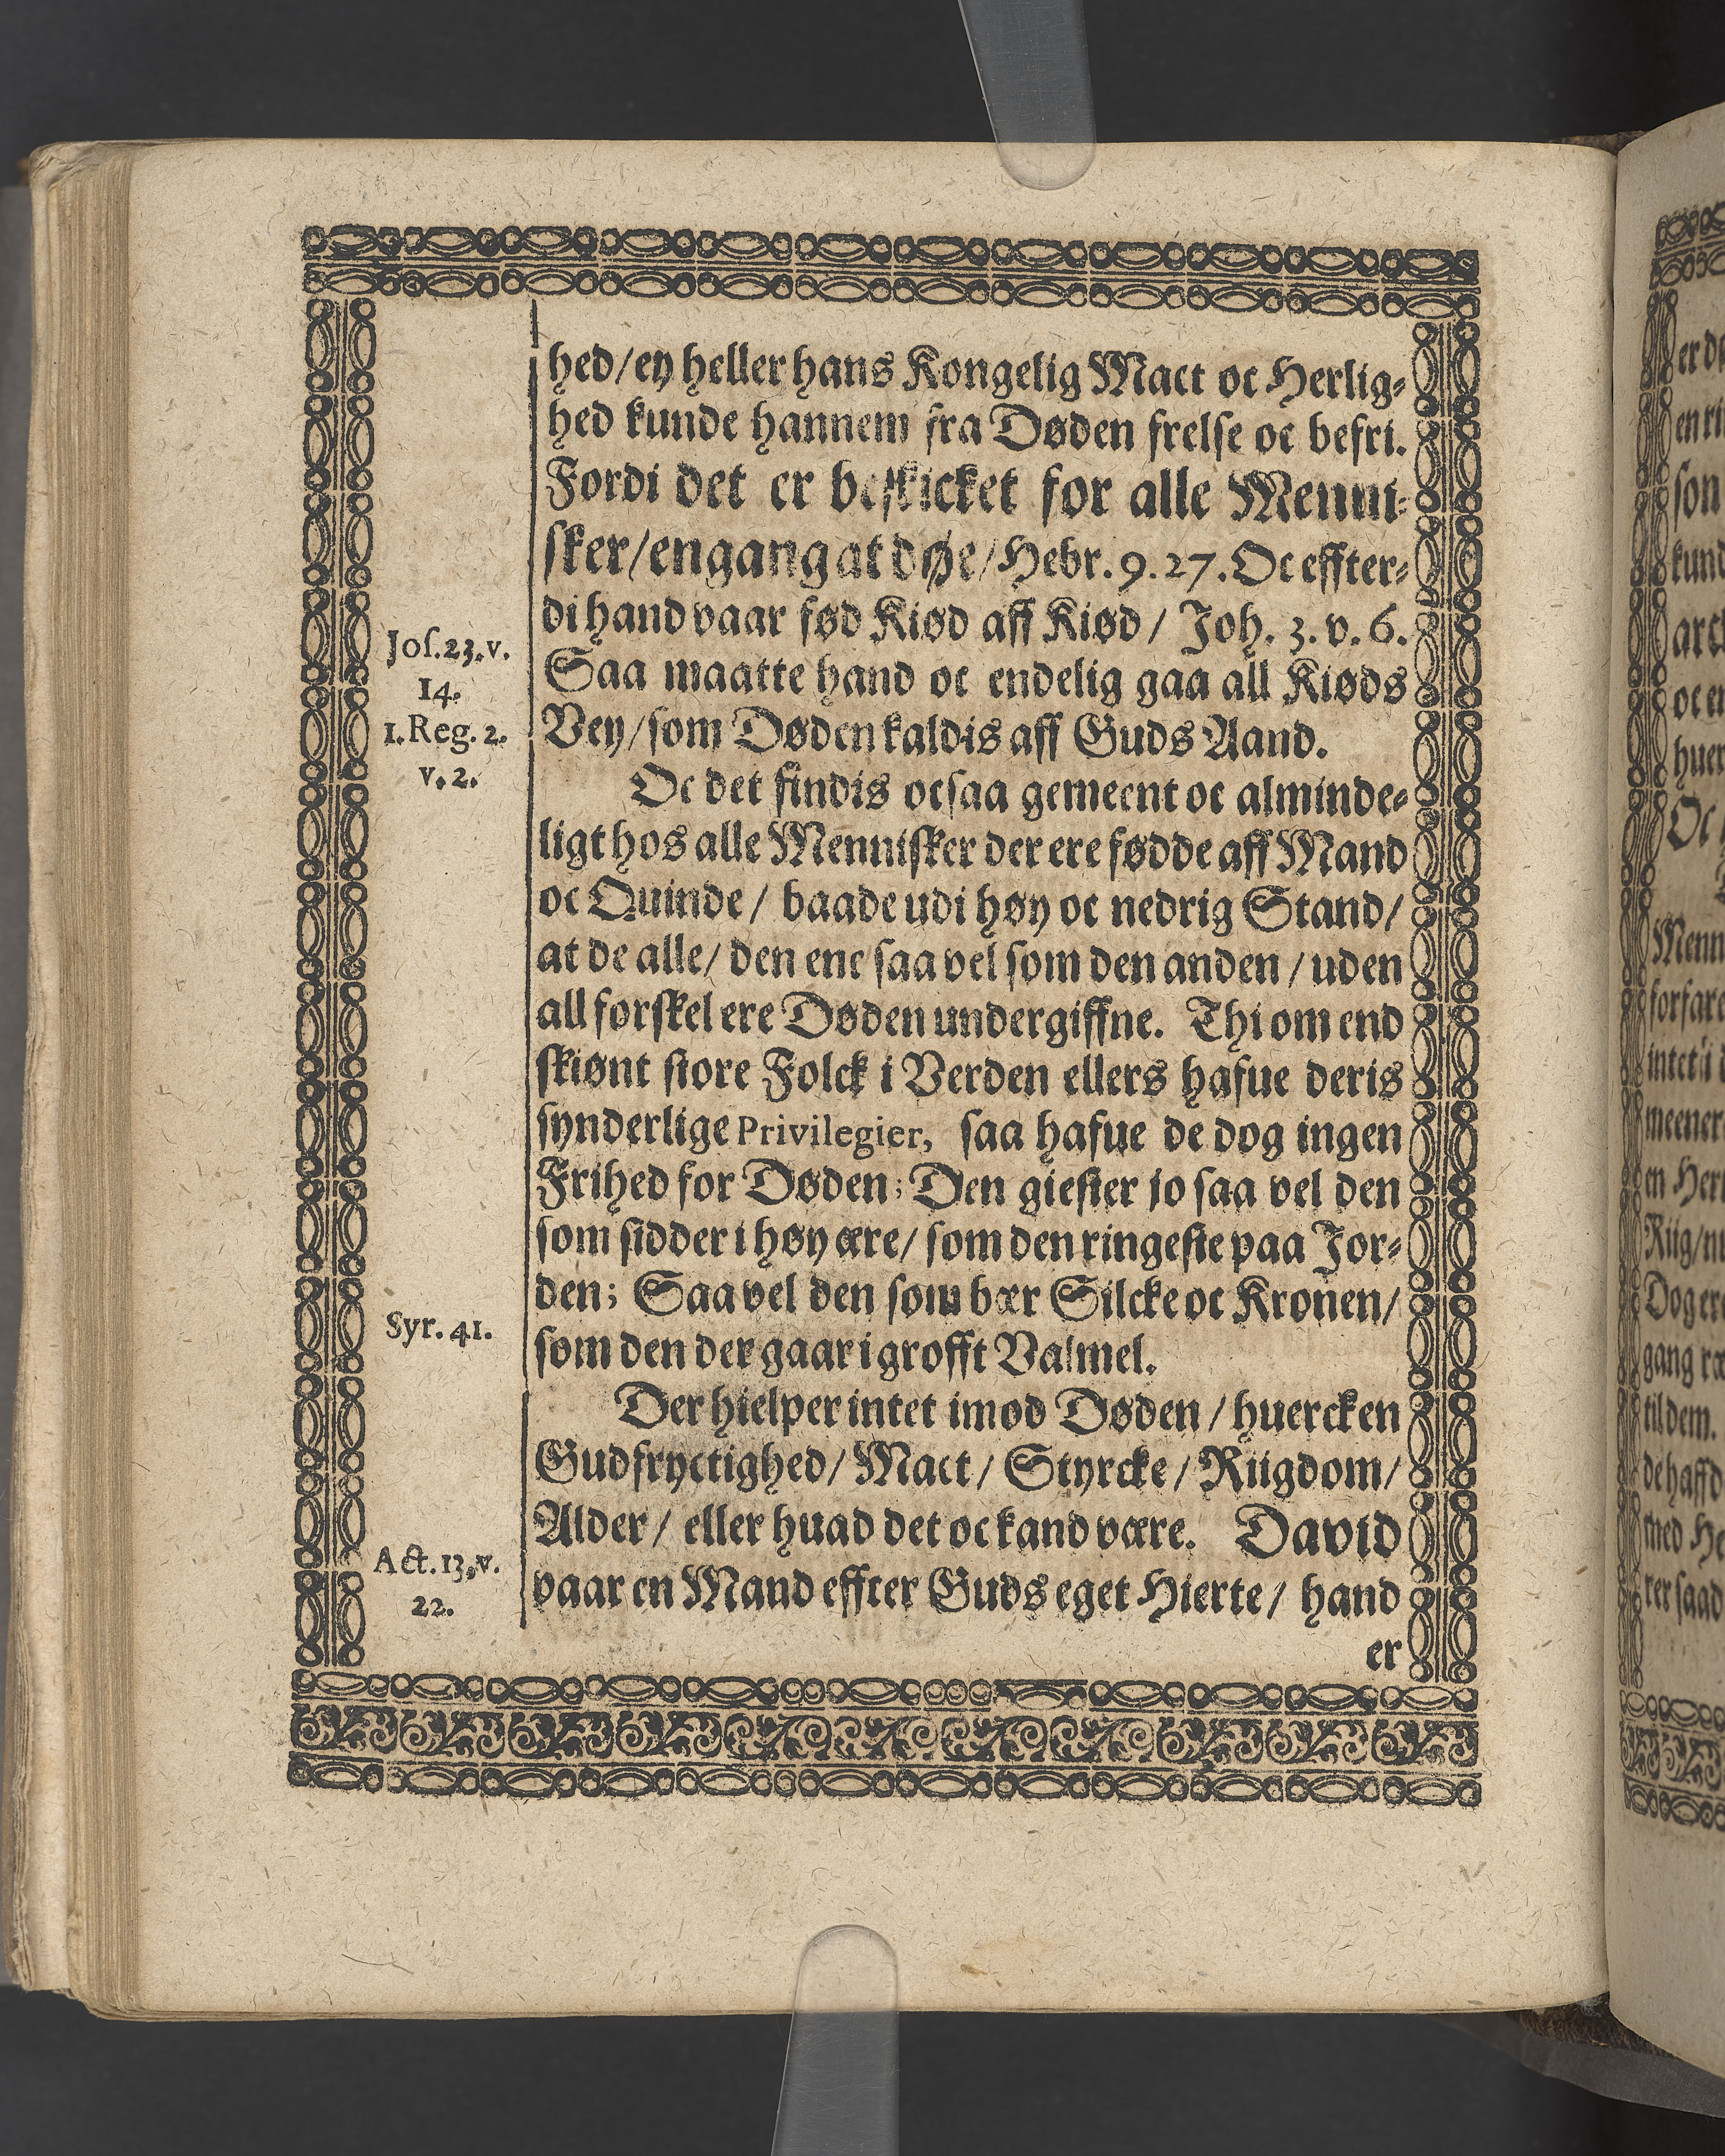 hed/ey heller hans Kongelig Mact oc Herlig⸗
hed kunde hannem fra Døden frelse oc befri.
Fordi det er beskicket for alle Menni⸗
sker/engang at døe/Hebr. 9. 27. Oc effter⸗
di hand vaar fød Kiød aff Kiød / Joh. 3. v. 6.
Saa maatte hand oc endelig gaa all Kiøds
Vey/som Døden kaldis aff Guds Aand.
Jos. 23. v.
14.
1. Reg. 2.
v. 2.
Oc det findis ocsaa gemeent oc alminde⸗
ligt hos alle Mennisker der ere fødde aff Mand
oc Quinde / baade udi høy oc nedrig Stand/
at de alle/ den ene saa vel som den anden / uden
all forskel ere Døden undergiffne. Thi om end
skiønt store Folck i Verden ellers hafue deris
synderlige Privilegier, saa hafue de dog ingen
Frihed for Døden; Den giester jo saa vel den
som sidder i høy ære/ som den ringeste paa Jor⸗
den; Saa vel den som bær Silcke oc Kronen/
som den der gaar i grofft Valmel.
Syr. 41.
Der hielper intet imod Døden / huercken
Gudfryctighed/ Mact/ Styrcke / Riigdom/
Alder/ eller huad det oc kand være. David
vaar en Mand effter Guds eget Hierte/ hand
Act. 13. v.
22.
er